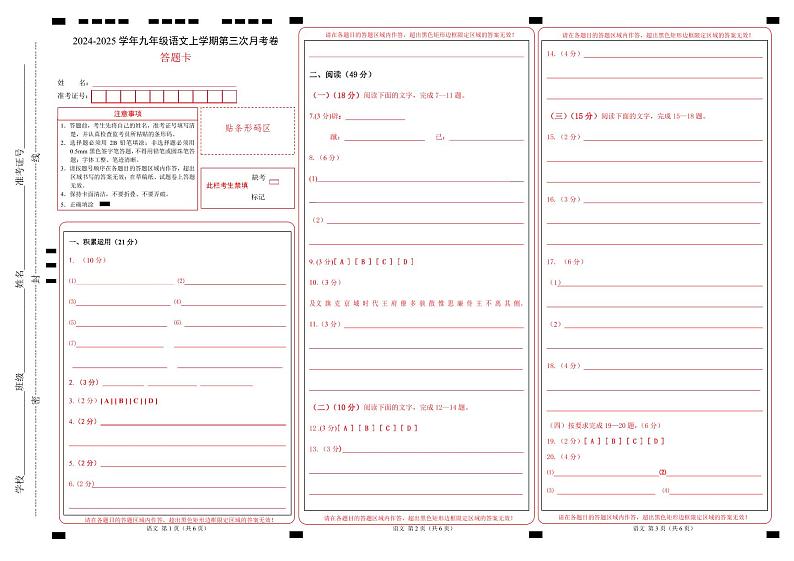 2024-2025 学年九年级语文上学期第三次月考卷
答题卡
姓 名:
准考证号:
注意事项
1. 答题前，考生先将自己的姓名，准考证号填写清
楚，并认真检查监考员所粘贴的条形码。
2. 选择题必须用 2B 铅笔填涂；非选择题必须用
0.5mm 黑色签字笔答题，不得用铅笔或圆珠笔答
题；字体工整、笔迹清晰。
3. 请按题号顺序在各题目的答题区域内作答，超出
区域书写的答案无效；在草稿纸、试题卷上答题
无效。
4. 保持卡面清洁，不要折叠、不要弄破。
5. 正确填涂
贴条形码区
此栏考生禁填
缺考
标记
学校
班级
姓名
准考证号
密
封
线
一、积累运用（21 分）
1. （10 分）
(1) (2)
(3) (4)
(5) (6)
(7)
2. （3 分）
3.（2 分）[ A ] [ B ] [ C ] [ D ]
4.（2 分）
5.（2 分）
6.（2 分）
请在各题目的答题区域内作答，超出黑色矩形边框限定区域的答案无效！
语文 第 1 页（共 6 页）
请在各题目的答题区域内作答，超出黑色矩形边框限定区域的答案无效！
二、阅读（49 分）
（一）（18 分）阅读下面的文字，完成 7—11 题。
7.(3 分)研：
已：
8.（6 分）
(1)
（2）
9.(3 分) [ A ] [ B ] [ C ] [ D ]
10.（3 分）
及 文 旌 克 京 城 时 代 王 府 僚 多 骄 傲 惟 思 廉 侍 王 不 离 其 侧。
11.（3 分）
（二）（10 分）阅读下面的文字，完成 12—14 题。
12.(3 分) [ A ] [ B ] [ C ] [ D ]
13.（3 分）
请在各题目的答题区域内作答，超出黑色矩形边框限定区域的答案无效！
语文 第 2 页（共 6 页）
请在各题目的答题区域内作答，超出黑色矩形边框限定区域的答案无效！
14.（4 分）
（三）（15 分）阅读下面的文字，完成 15—18 题。
15.（2 分）
16.（3 分）
17. （6 分）
（1）
（2）
18.（4 分）
（四）按要求完成 19—20 题。（6 分）
19.（2 分）[ A ] [ B ] [ C ] [ D ]
20.（4 分）
(1) (2)
(3) (4)
请在各题目的答题区域内作答，超出黑色矩形边框限定区域的答案无效！
语文 第 3 页（共 6 页）